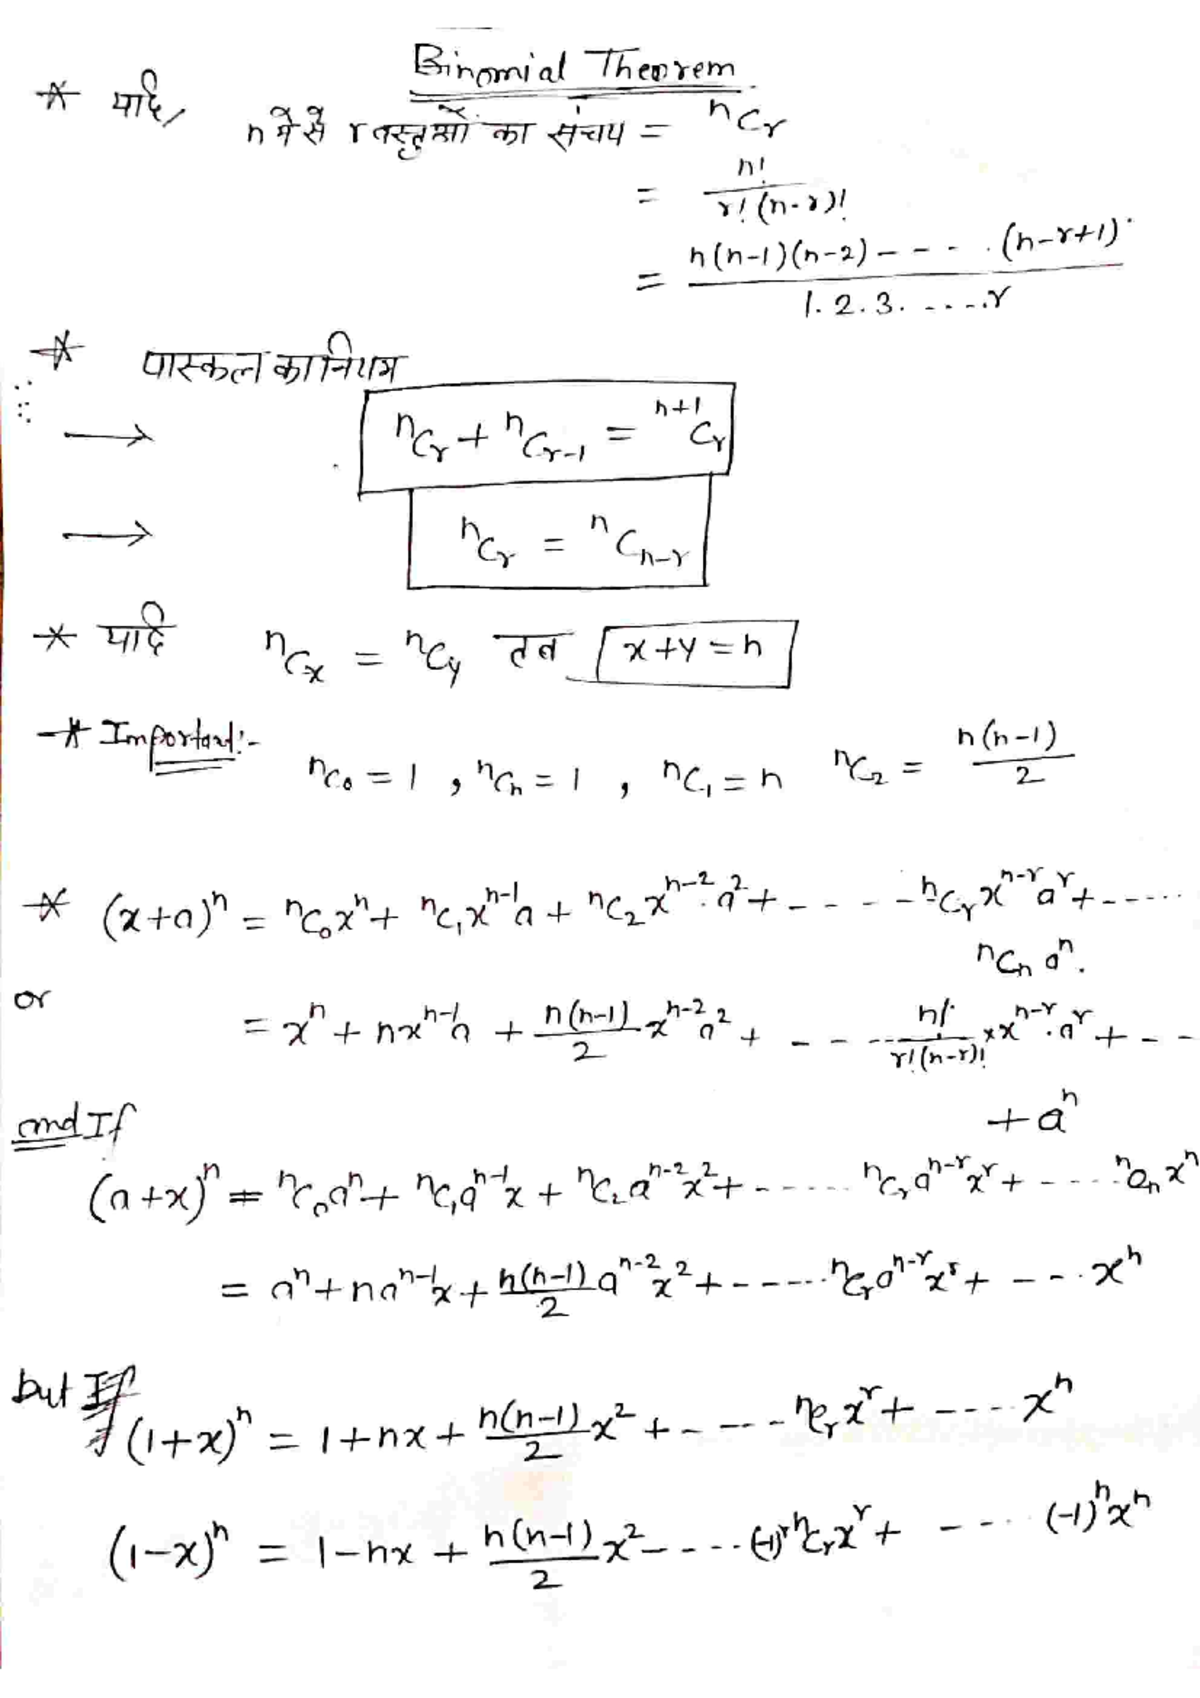 Binomial Theorem
* यदि, n में से r वस्तुओं का संचय = ⁿCᵣ
= n! / r!(n-r)!
= n(n-1)(n-2) - - - . . (n-r+1) / 1.2.3. - - ..r
* पास्कल का नियम
→ ⁿCᵣ + ⁿCᵣ₋₁ = ⁿ⁺¹Cᵣ
→ ⁿCᵣ = ⁿCₙ₋ᵣ
* यदि ⁿCₓ = ⁿC_y तब x+y=n
* Important:-
ⁿC₀ = 1 , ⁿCₙ = 1 , ⁿC₁ = n ⁿC₂ = n(n-1)/2
* (x+a)ⁿ = ⁿC₀xⁿ + ⁿC₁xⁿ⁻¹a + ⁿC₂xⁿ⁻².a² + - - - - - ⁿCᵣxⁿ⁻ʳaʳ + - - - - -
ⁿCₙ aⁿ.
or
= xⁿ + nxⁿ⁻¹a + n(n-1)/2 xⁿ⁻²a² + - - - - - n!/r!(n-r)! × xⁿ⁻ʳ.aʳ + - -
+ aⁿ
and If
(a+x)ⁿ = ⁿC₀aⁿ + ⁿC₁aⁿ⁻¹x + ⁿC₂aⁿ⁻²x² + - - - - - ⁿCᵣaⁿ⁻ʳxʳ + - - - - - ⁿCₙxⁿ
= aⁿ + naⁿ⁻¹x + n(n-1)/2 aⁿ⁻²x² + - - - - - ⁿCᵣaⁿ⁻ʳxʳ + - - - xⁿ
but If
(1+x)ⁿ = 1 + nx + n(n-1)/2 x² + - - - - ⁿCᵣxʳ + - - - - xⁿ
(1-x)ⁿ = 1 - nx + n(n-1)/2 x² - - - - - (-1)ʳ ⁿCᵣxʳ + - - - - (-1)ⁿxⁿ